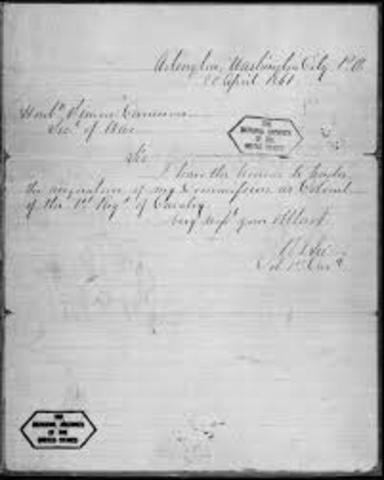 Arlington, Washington City P.O.
20 April 1861
Honble Simon Cameron
Secy of War
THE
NATIONAL ARCHIVES
OF THE
UNITED STATES
Sir
I have the honour to tender
the resignation of my commission as Colonel
of the 1st Regt of Cavalry
Very resply your Obt Servt
R E Lee
Col 1st Cavy
THE
NATIONAL ARCHIVES
OF THE
UNITED STATES